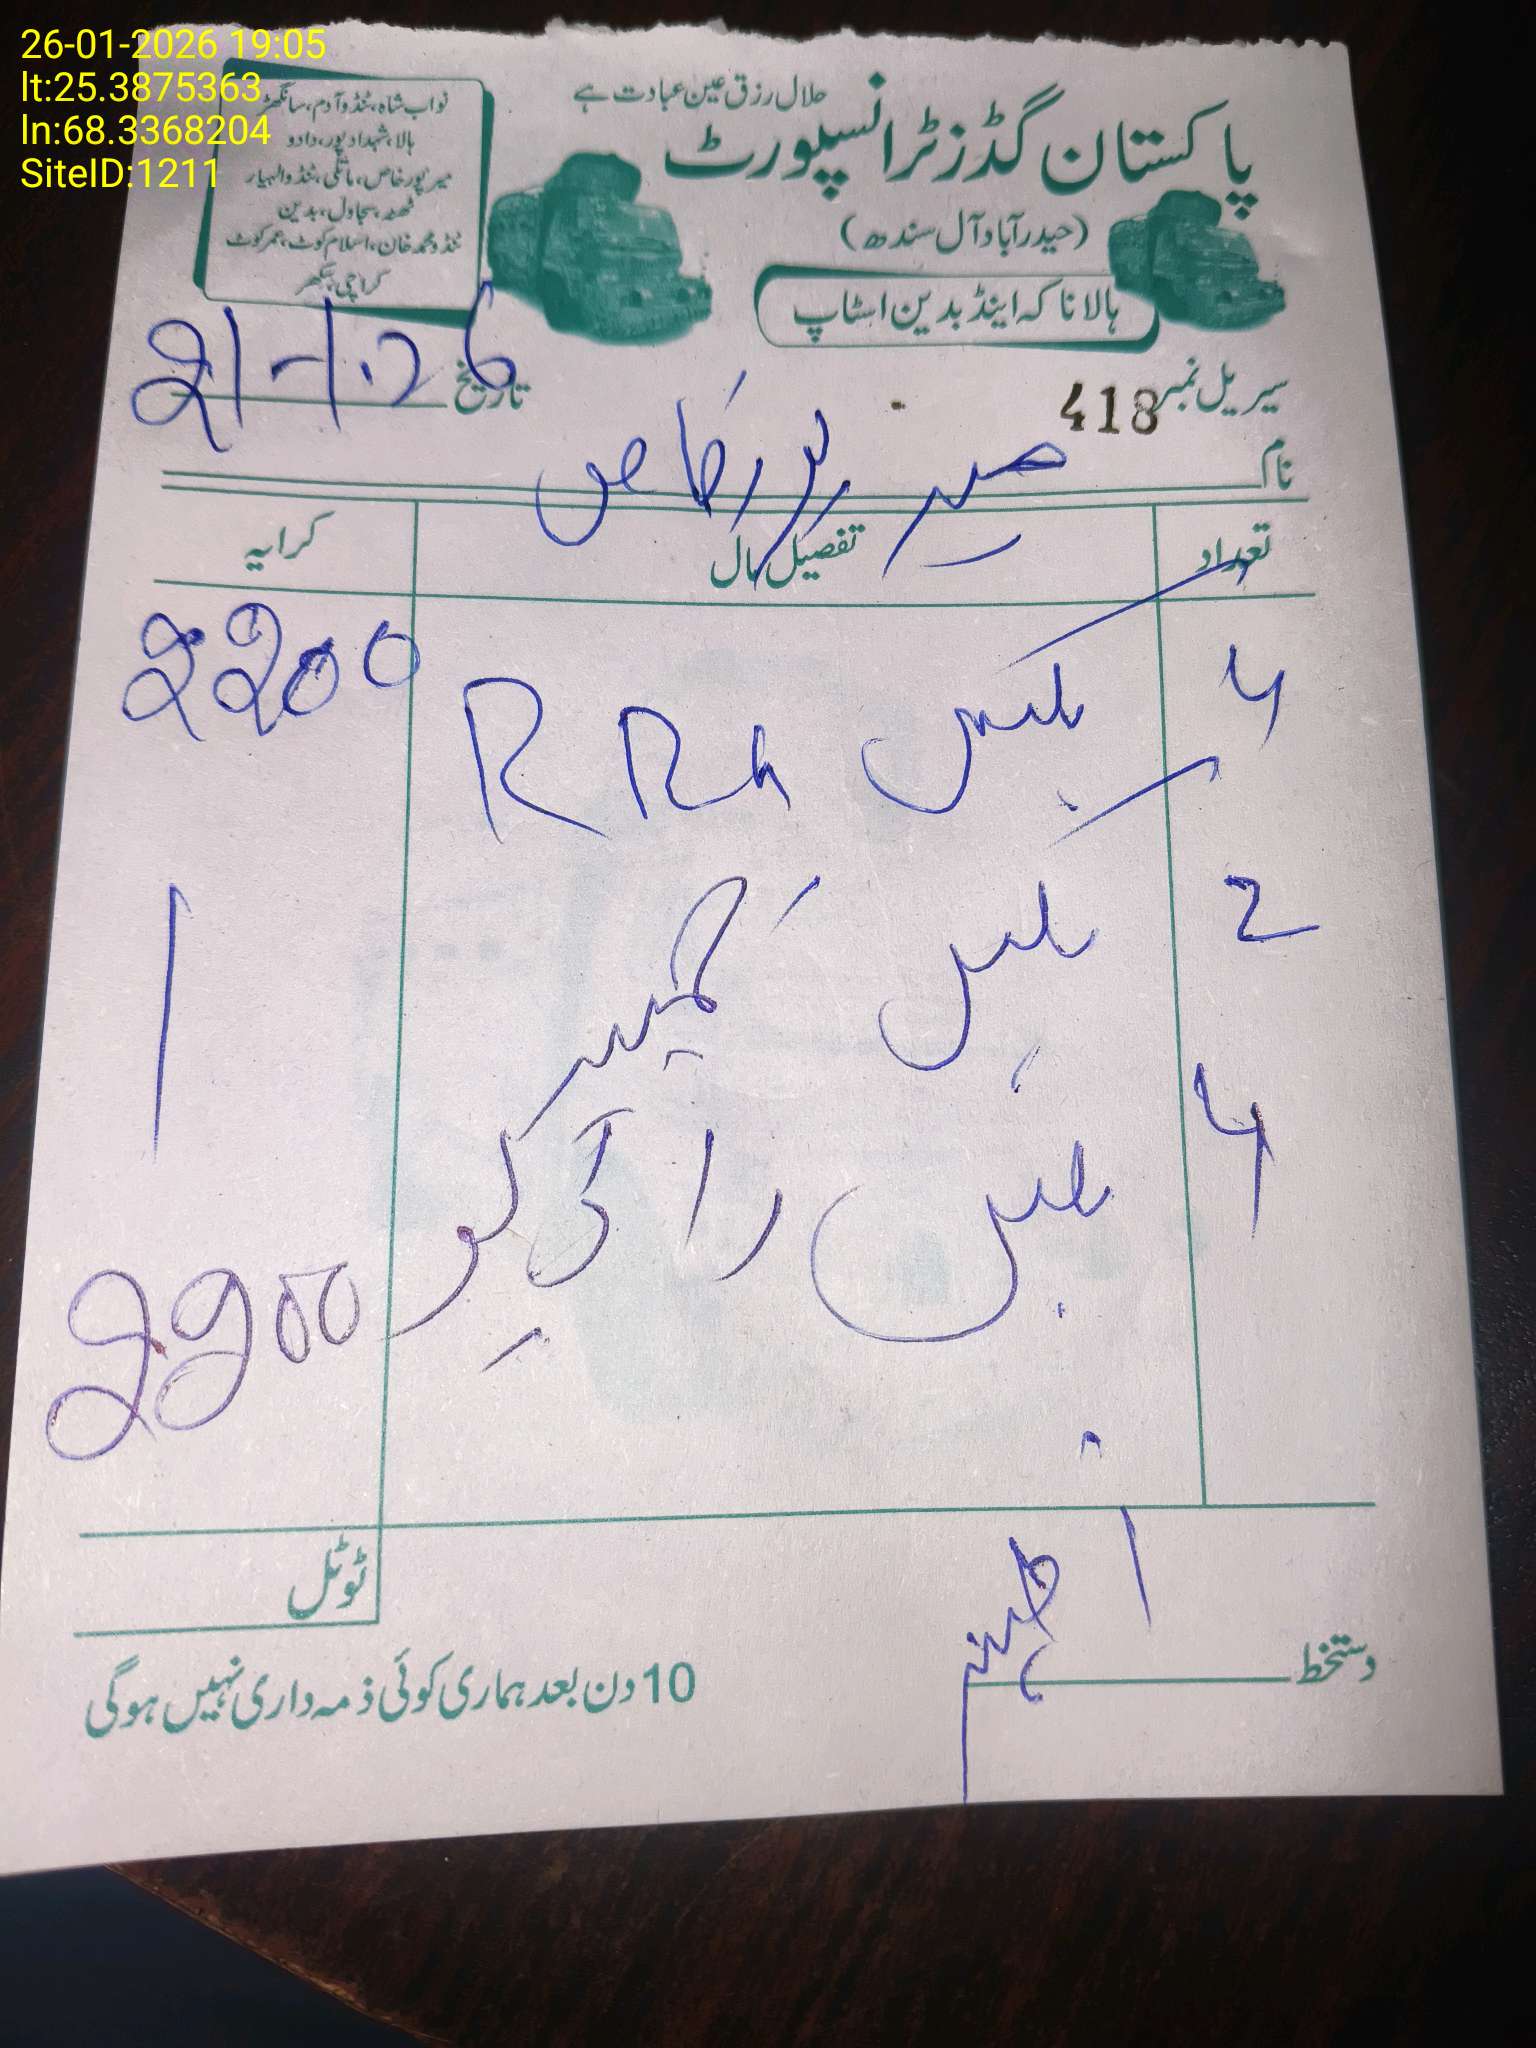 26-01-2026 19:05
lt:25.3875363
ln:68.3368204
SiteID:1211
حلال رزق عین عبادت ہے
پاکستان گڈز ٹرانسپورٹ
(حیدرآباد آل سندھ)
ہالا ناکہ اینڈ بدین اسٹاپ
نواب شاہ، ٹنڈوآدم، سانگھڑ
ہالا، شہدادپور، دادو
میرپورخاص، ماتلی، ٹنڈوالہیار
ٹھٹھہ، سجاول، بدین
ٹنڈومحمدخان، اسلام کوٹ، عمرکوٹ
کراچی، سکھر
سیریل نمبر 418
تاریخ 21-1-26
نام میرپورخاص
تعداد تفصیل مال کرایہ
4 بکس RRG 2200
2 بکس
4 بکس
2200
ٹوٹل
دستخط
10 دن بعد ہماری کوئی ذمہ داری نہیں ہوگی